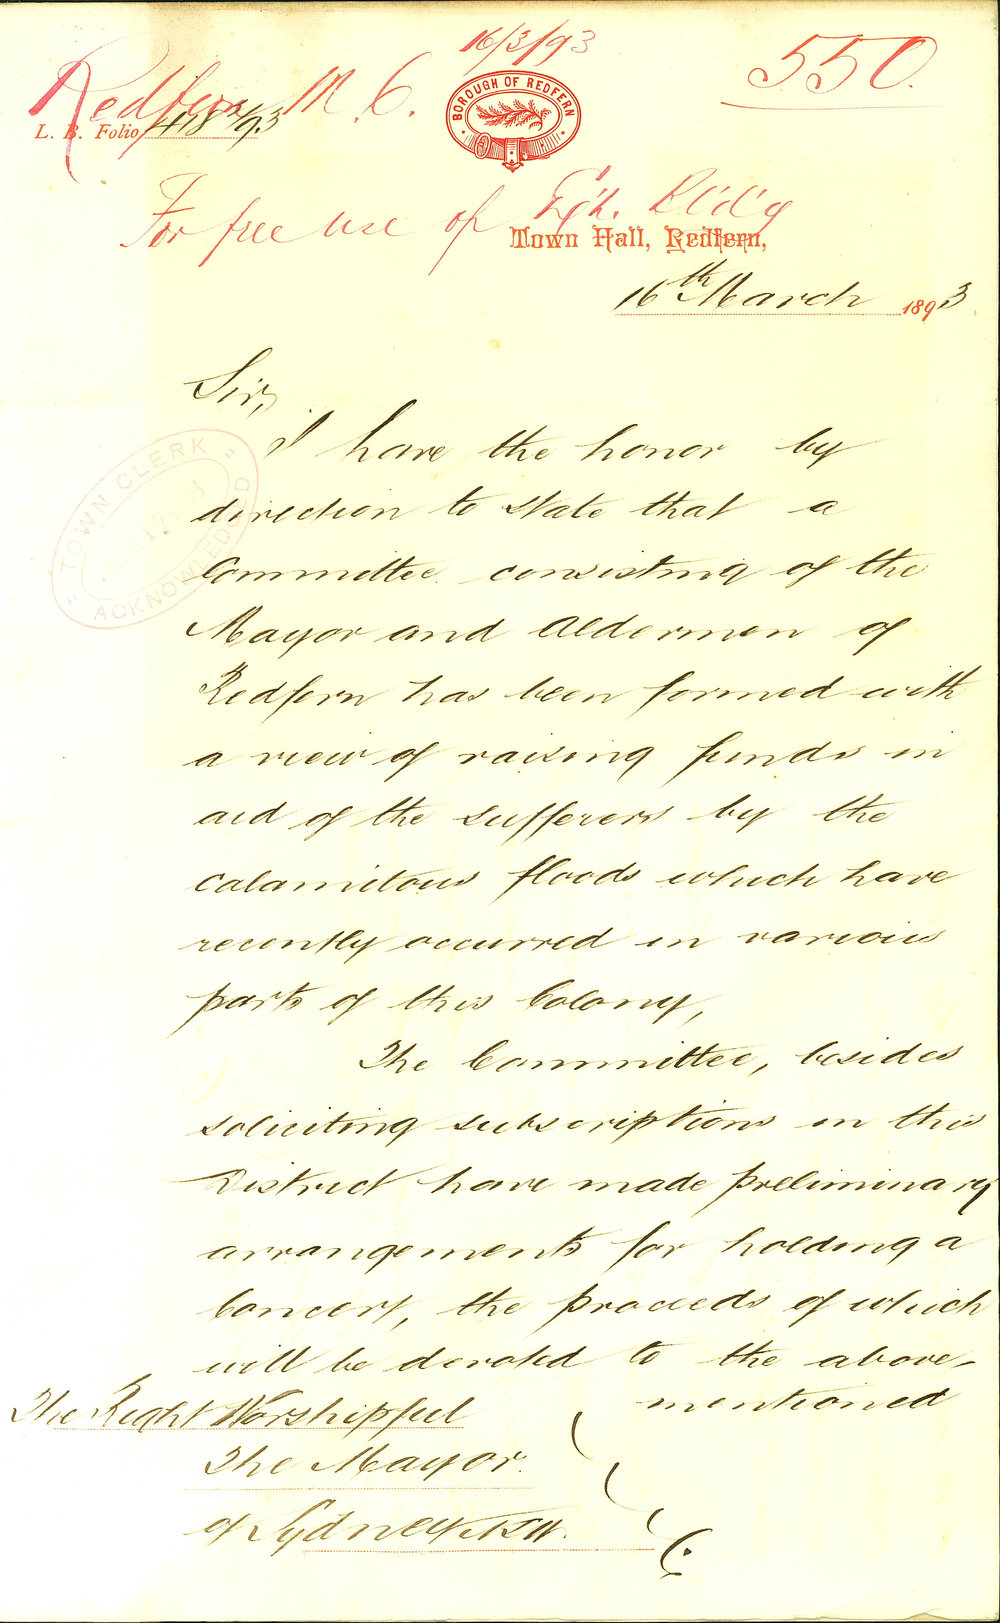 16/3/93
550.
Redfern M. C.
BOROUGH OF REDFERN
L. B. Folio 418 /93
For free use of Exh. Bld'g
Town Hall, Redfern,
16th March 1893
Sir,
I have the honor by
direction to state that a
Committee consisting of the
Mayor and Aldermen of
Redfern has been formed with
a view of raising funds in
aid of the sufferers by the
calamitous floods which have
recently occurred in various
parts of this Colony,
The Committee, besides
soliciting subscriptions in this
District have made preliminary
arrangements for holding a
Concert, the proceeds of which
will be devoted to the above-
mentioned
The Right Worshipful
The Mayor
of Sydney NSW.
TOWN CLERK
17
ACKNOWLEDGED